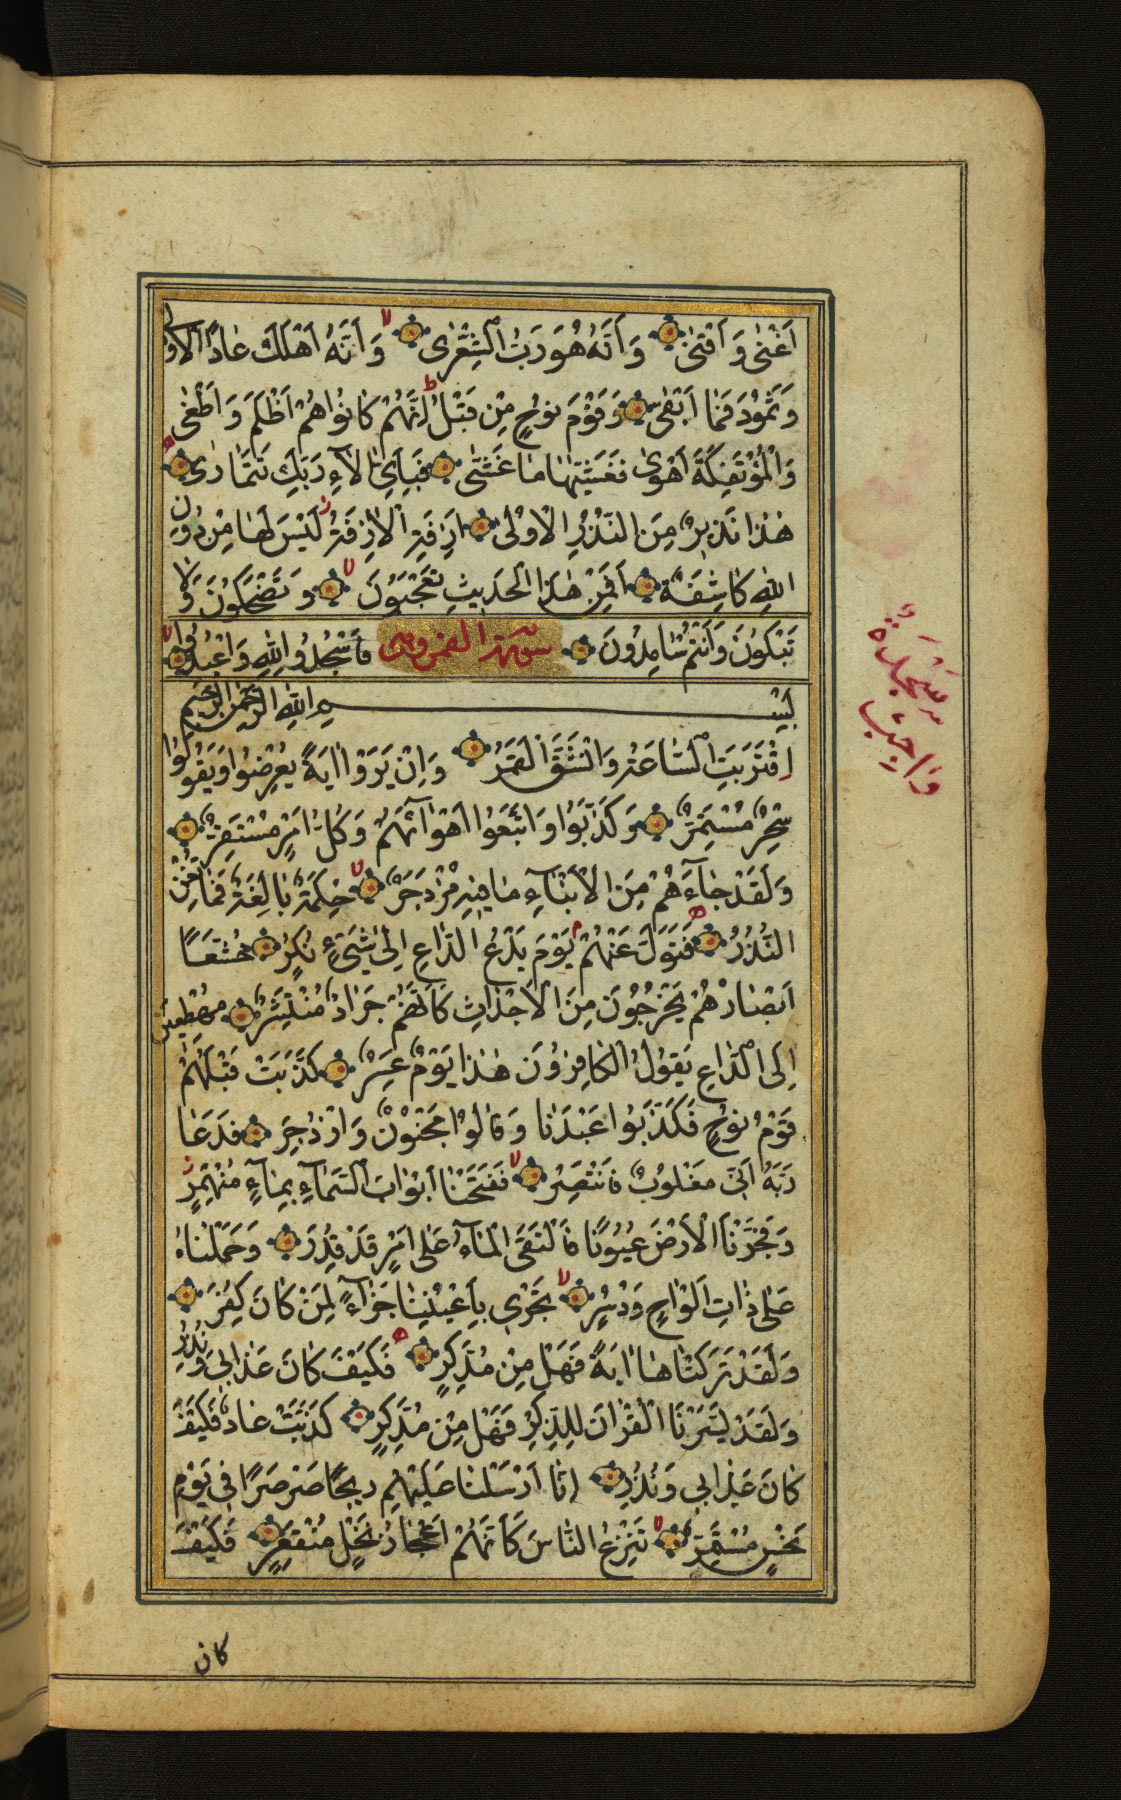 اَغْنٰى وَ اَقْنٰى وَ اَنَّهُ هُوَ رَبُّ الشِّعْرٰى وَ اَنَّهُ اَهْلَكَ عَادًا الْاُولٰى
وَ ثَمُودَ فَمَا اَبْقٰى وَ قَوْمَ نُوحٍ مِنْ قَبْلُ اِنَّهُمْ كَانُوا هُمْ اَظْلَمَ وَ اَطْغٰى
وَ الْمُؤْتَفِكَةَ اَهْوٰى فَغَشّٰيهَا مَا غَشّٰى فَبِاَىِّ اٰلَاءِ رَبِّكَ تَتَمَارٰى
هٰذَا نَذِيرٌ مِنَ النُّذُرِ الْاُولٰى اَزِفَتِ الْاٰزِفَةُ لَيْسَ لَهَا مِنْ دُونِ
اللهِ كَاشِفَةٌ اَفَمِنْ هٰذَا الْحَدِيثِ تَعْجَبُونَ وَ تَضْحَكُونَ وَلَا
تَبْكُونَ وَ اَنْتُمْ سَامِدُونَ فَاسْجُدُوا لِلّٰهِ وَاعْبُدُوا
سورة القمر
بِسْمِ اللهِ الرَّحْمٰنِ الرَّحِيمِ
اِقْتَرَبَتِ السَّاعَةُ وَ انْشَقَّ الْقَمَرُ وَ اِنْ يَرَوْا اٰيَةً يُعْرِضُوا وَ يَقُولُوا
سِحْرٌ مُسْتَمِرٌّ وَ كَذَّبُوا وَ اتَّبَعُوا اَهْوَاءَهُمْ وَ كُلُّ اَمْرٍ مُسْتَقِرٌّ
وَ لَقَدْ جَاءَهُمْ مِنَ الْاَنْبَاءِ مَا فِيهِ مُزْدَجَرٌ حِكْمَةٌ بَالِغَةٌ فَمَا تُغْنِ
النُّذُرُ فَتَوَلَّ عَنْهُمْ يَوْمَ يَدْعُ الدَّاعِ اِلٰى شَىْءٍ نُكُرٍ خُشَّعًا
اَبْصَارُهُمْ يَخْرُجُونَ مِنَ الْاَجْدَاثِ كَاَنَّهُمْ جَرَادٌ مُنْتَشِرٌ مُهْطِعِينَ
اِلَى الدَّاعِ يَقُولُ الْكَافِرُونَ هٰذَا يَوْمٌ عَسِرٌ كَذَّبَتْ قَبْلَهُمْ
قَوْمُ نُوحٍ فَكَذَّبُوا عَبْدَنَا وَ قَالُوا مَجْنُونٌ وَ ازْدُجِرَ فَدَعَا
رَبَّهُ اَنِّى مَغْلُوبٌ فَانْتَصِرْ فَفَتَحْنَا اَبْوَابَ السَّمَاءِ بِمَاءٍ مُنْهَمِرٍ
وَ فَجَّرْنَا الْاَرْضَ عُيُونًا فَالْتَقَى الْمَاءُ عَلٰى اَمْرٍ قَدْ قُدِرَ وَ حَمَلْنَاهُ
عَلٰى ذَاتِ اَلْوَاحٍ وَ دُسُرٍ تَجْرِى بِاَعْيُنِنَا جَزَاءً لِمَنْ كَانَ كُفِرَ
وَ لَقَدْ تَرَكْنَاهَا اٰيَةً فَهَلْ مِنْ مُدَّكِرٍ فَكَيْفَ كَانَ عَذَابِى وَ نُذُرِ
وَ لَقَدْ يَسَّرْنَا الْقُرْاٰنَ لِلذِّكْرِ فَهَلْ مِنْ مُدَّكِرٍ كَذَّبَتْ عَادٌ فَكَيْفَ
كَانَ عَذَابِى وَ نُذُرِ اِنَّا اَرْسَلْنَا عَلَيْهِمْ رِيحًا صَرْصَرًا فِى يَوْمِ
نَحْسٍ مُسْتَمِرٍّ تَنْزِعُ النَّاسَ كَاَنَّهُمْ اَعْجَازُ نَخْلٍ مُنْقَعِرٍ فَكَيْفَ
كان
سَجْدَهٔ
وَاجِبْ